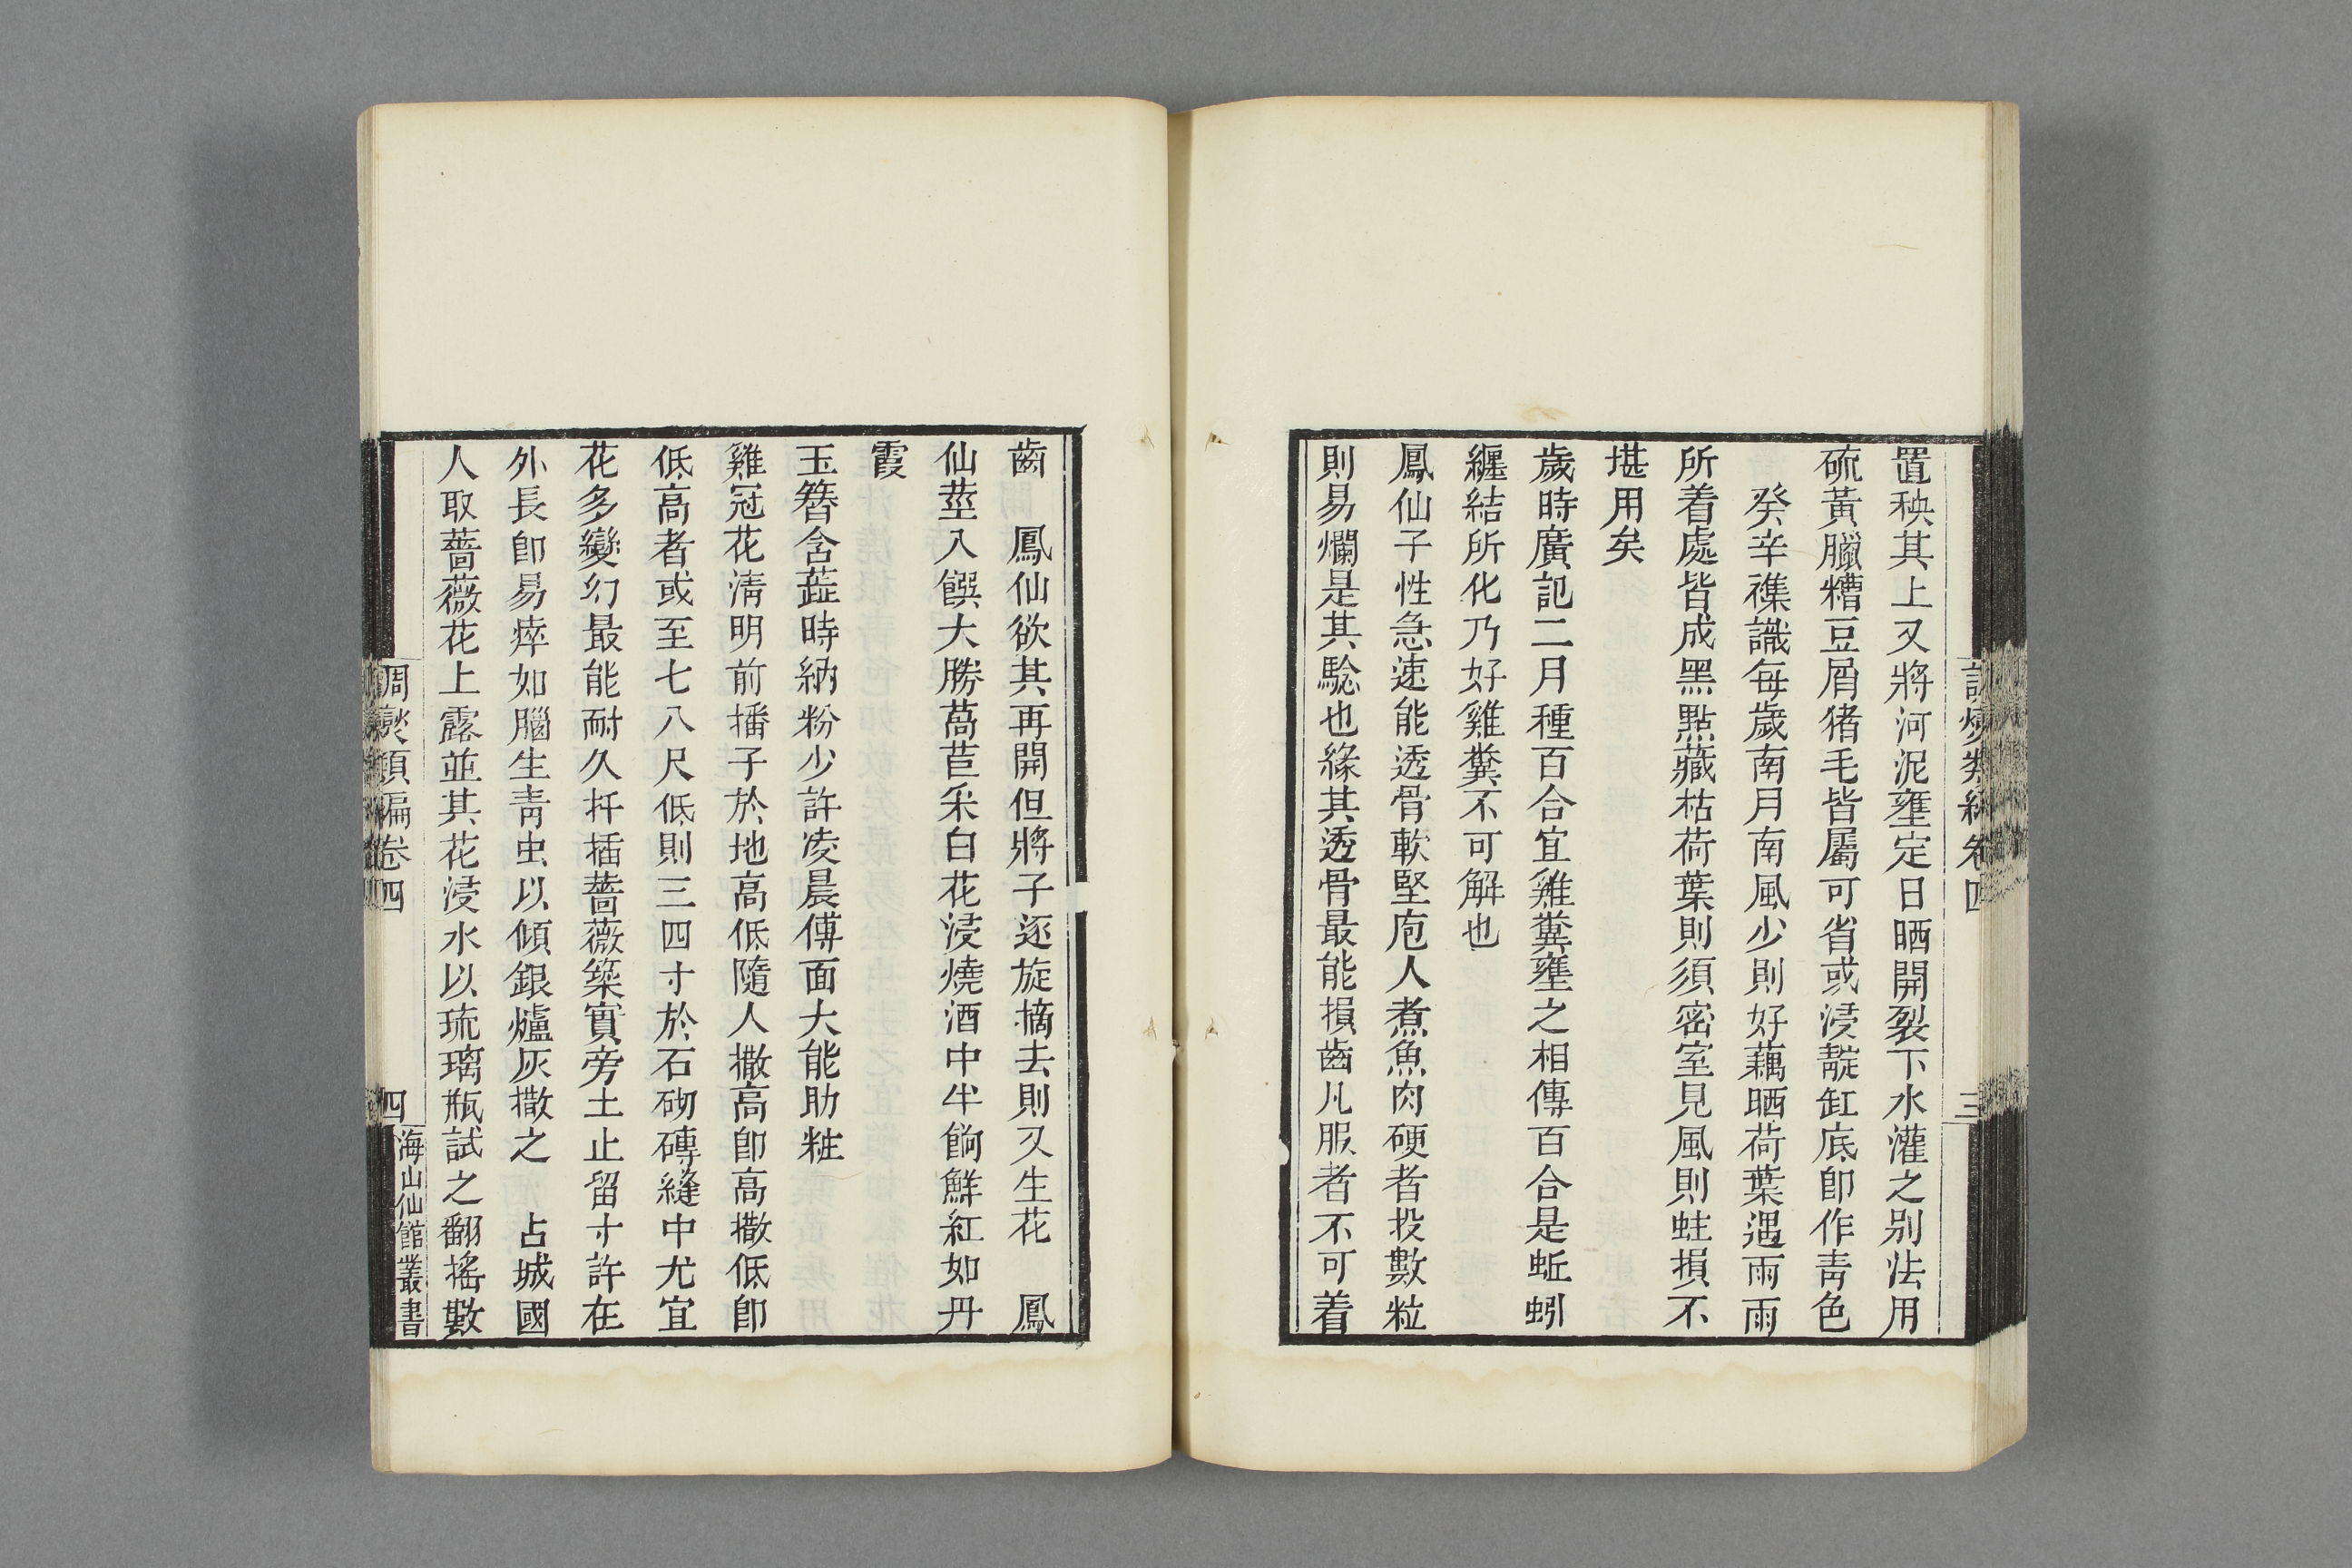 置秧其上又將河泥壅定日晒開裂下水灌之别法用
硫黃臘糟豆屑猪毛皆屬可省或浸靛缸底卽作青色
癸辛襍識每歲南月南風少則好藕晒荷葉遇雨雨
所着處皆成黑點藏枯荷葉則須密室見風則蛀損不
堪用矣
歲時廣記二月種百合宜雞糞壅之相傳百合是蚯蚓
纒結所化乃好雞糞不可解也
鳳仙子性急速能透骨軟堅庖人煮魚肉硬者投數粒
則易爛是其騐也緣其透骨最能損齒凡服者不可着
齒　鳳仙欲其再開但將子逐旋摘去則又生花　鳳
仙莖入饌大勝萵苣采白花浸燒酒中半餉鮮紅如丹
霞
玉簪含蕋時納粉少許凌晨傅面大能助粧
雞冠花淸明前播子於地高低隨人撒高卽高撒低卽
低高者或至七八尺低則三四寸於石砌磚縫中尤宜
花多變幻最能耐久扦插薔薇築實旁土止留寸許在
外長卽易瘁如腦生青虫以傾銀爐灰撒之　占城國
人取薔薇花上露並其花浸水以琉璃瓶試之翻搖數
調燮類編卷四
四
海山仙館叢書